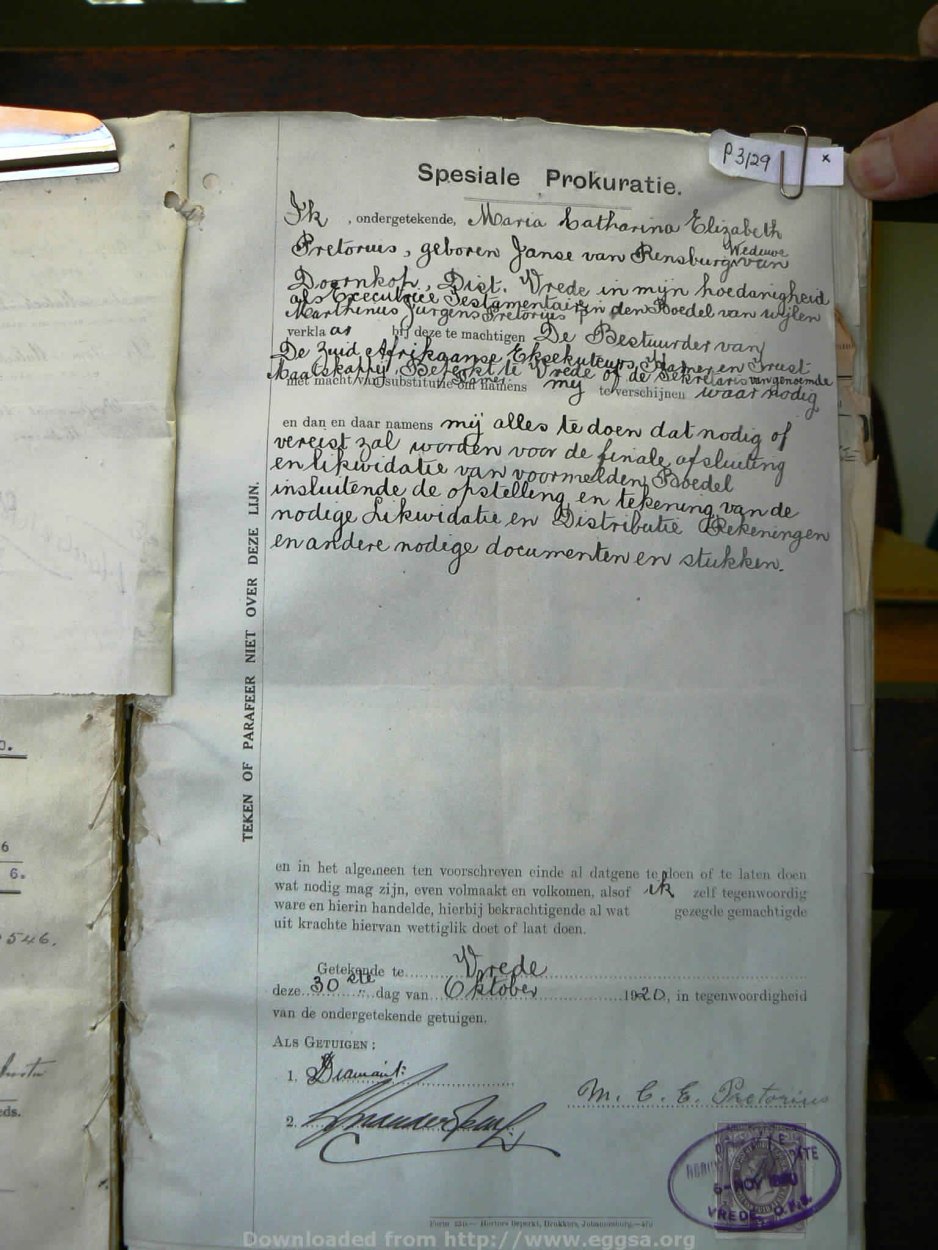 P 3/29 x
Spesiale Prokuratie.
Ik , ondergetekende, Maria Catharina Elizabeth
Pretorius, geboren Janse van Rensburg Weduwe van
Doornkop, Dist. Vrede in mijn hoedanigheid
als Executrice Testamentair in den Boedel van wijlen
Marthinus Jurgens Pretorius
verklaar bij deze te machtigen De Bestuurder van
De Zuid Afrikaanse Eksekuteurs Kamer en Trust
Maatskappij Beperkt te Vrede of de Sekretaris van genoemde
Kamer
met macht van substitutie om namens mij te verschijnen waar nodig
en dan en daar namens mij alles te doen dat nodig of
vereist zal worden voor de finale afsluiting
en likwidatie van voormelden Boedel
insluitende de opstelling en tekening van de
nodige Likwidatie en Distributie Rekeningen
en andere nodige documenten en stukken.
TEKEN OF PARAFEER NIET OVER DEZE LIJN.
en in het algemeen ten voorschreven einde al datgene te doen of te laten doen
wat nodig mag zijn, even volmaakt en volkomen, alsof ik zelf tegenwoordig
ware en hierin handelde, hierbij bekrachtigende al wat gezegde gemachtigde
uit krachte hiervan wettiglik doet of laat doen.
Getekende te Vrede
deze 30ste dag van Oktober 1920, in tegenwoordigheid
van de ondergetekende getuigen.
ALS GETUIGEN:
1. Diamant
2.
M. C. E. Pretorius
6 - NOV 1920
VREDE. O.F.S.
Form 250.— Hortors Beperkt, Drukkers, Johannesburg.
6
6.
546.
eds.
Downloaded from http://www.eggsa.org